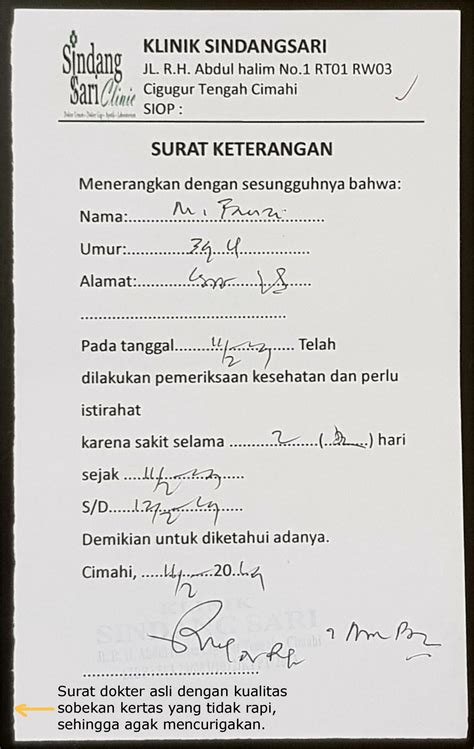 Sindang
Sari Clinic
KLINIK SINDANGSARI
JL. R.H. Abdul halim No.1 RT01 RW03
Cigugur Tengah Cimahi
SIOP :
SURAT KETERANGAN
Menerangkan dengan sesungguhnya bahwa:
Nama:.....M. Fauzi.....
Umur:...............
Alamat:...............
...............
Pada tanggal.....11/2..... Telah
dilakukan pemeriksaan kesehatan dan perlu
istirahat
karena sakit selama .....2.....(.....) hari
sejak .....11/2.....
S/D.....12/2.....
Demikian untuk diketahui adanya.
Cimahi, .....11/2.....20..19
KLINIK
SINDANG SARI
Surat dokter asli dengan kualitas
sobekan kertas yang tidak rapi,
sehingga agak mencurigakan.